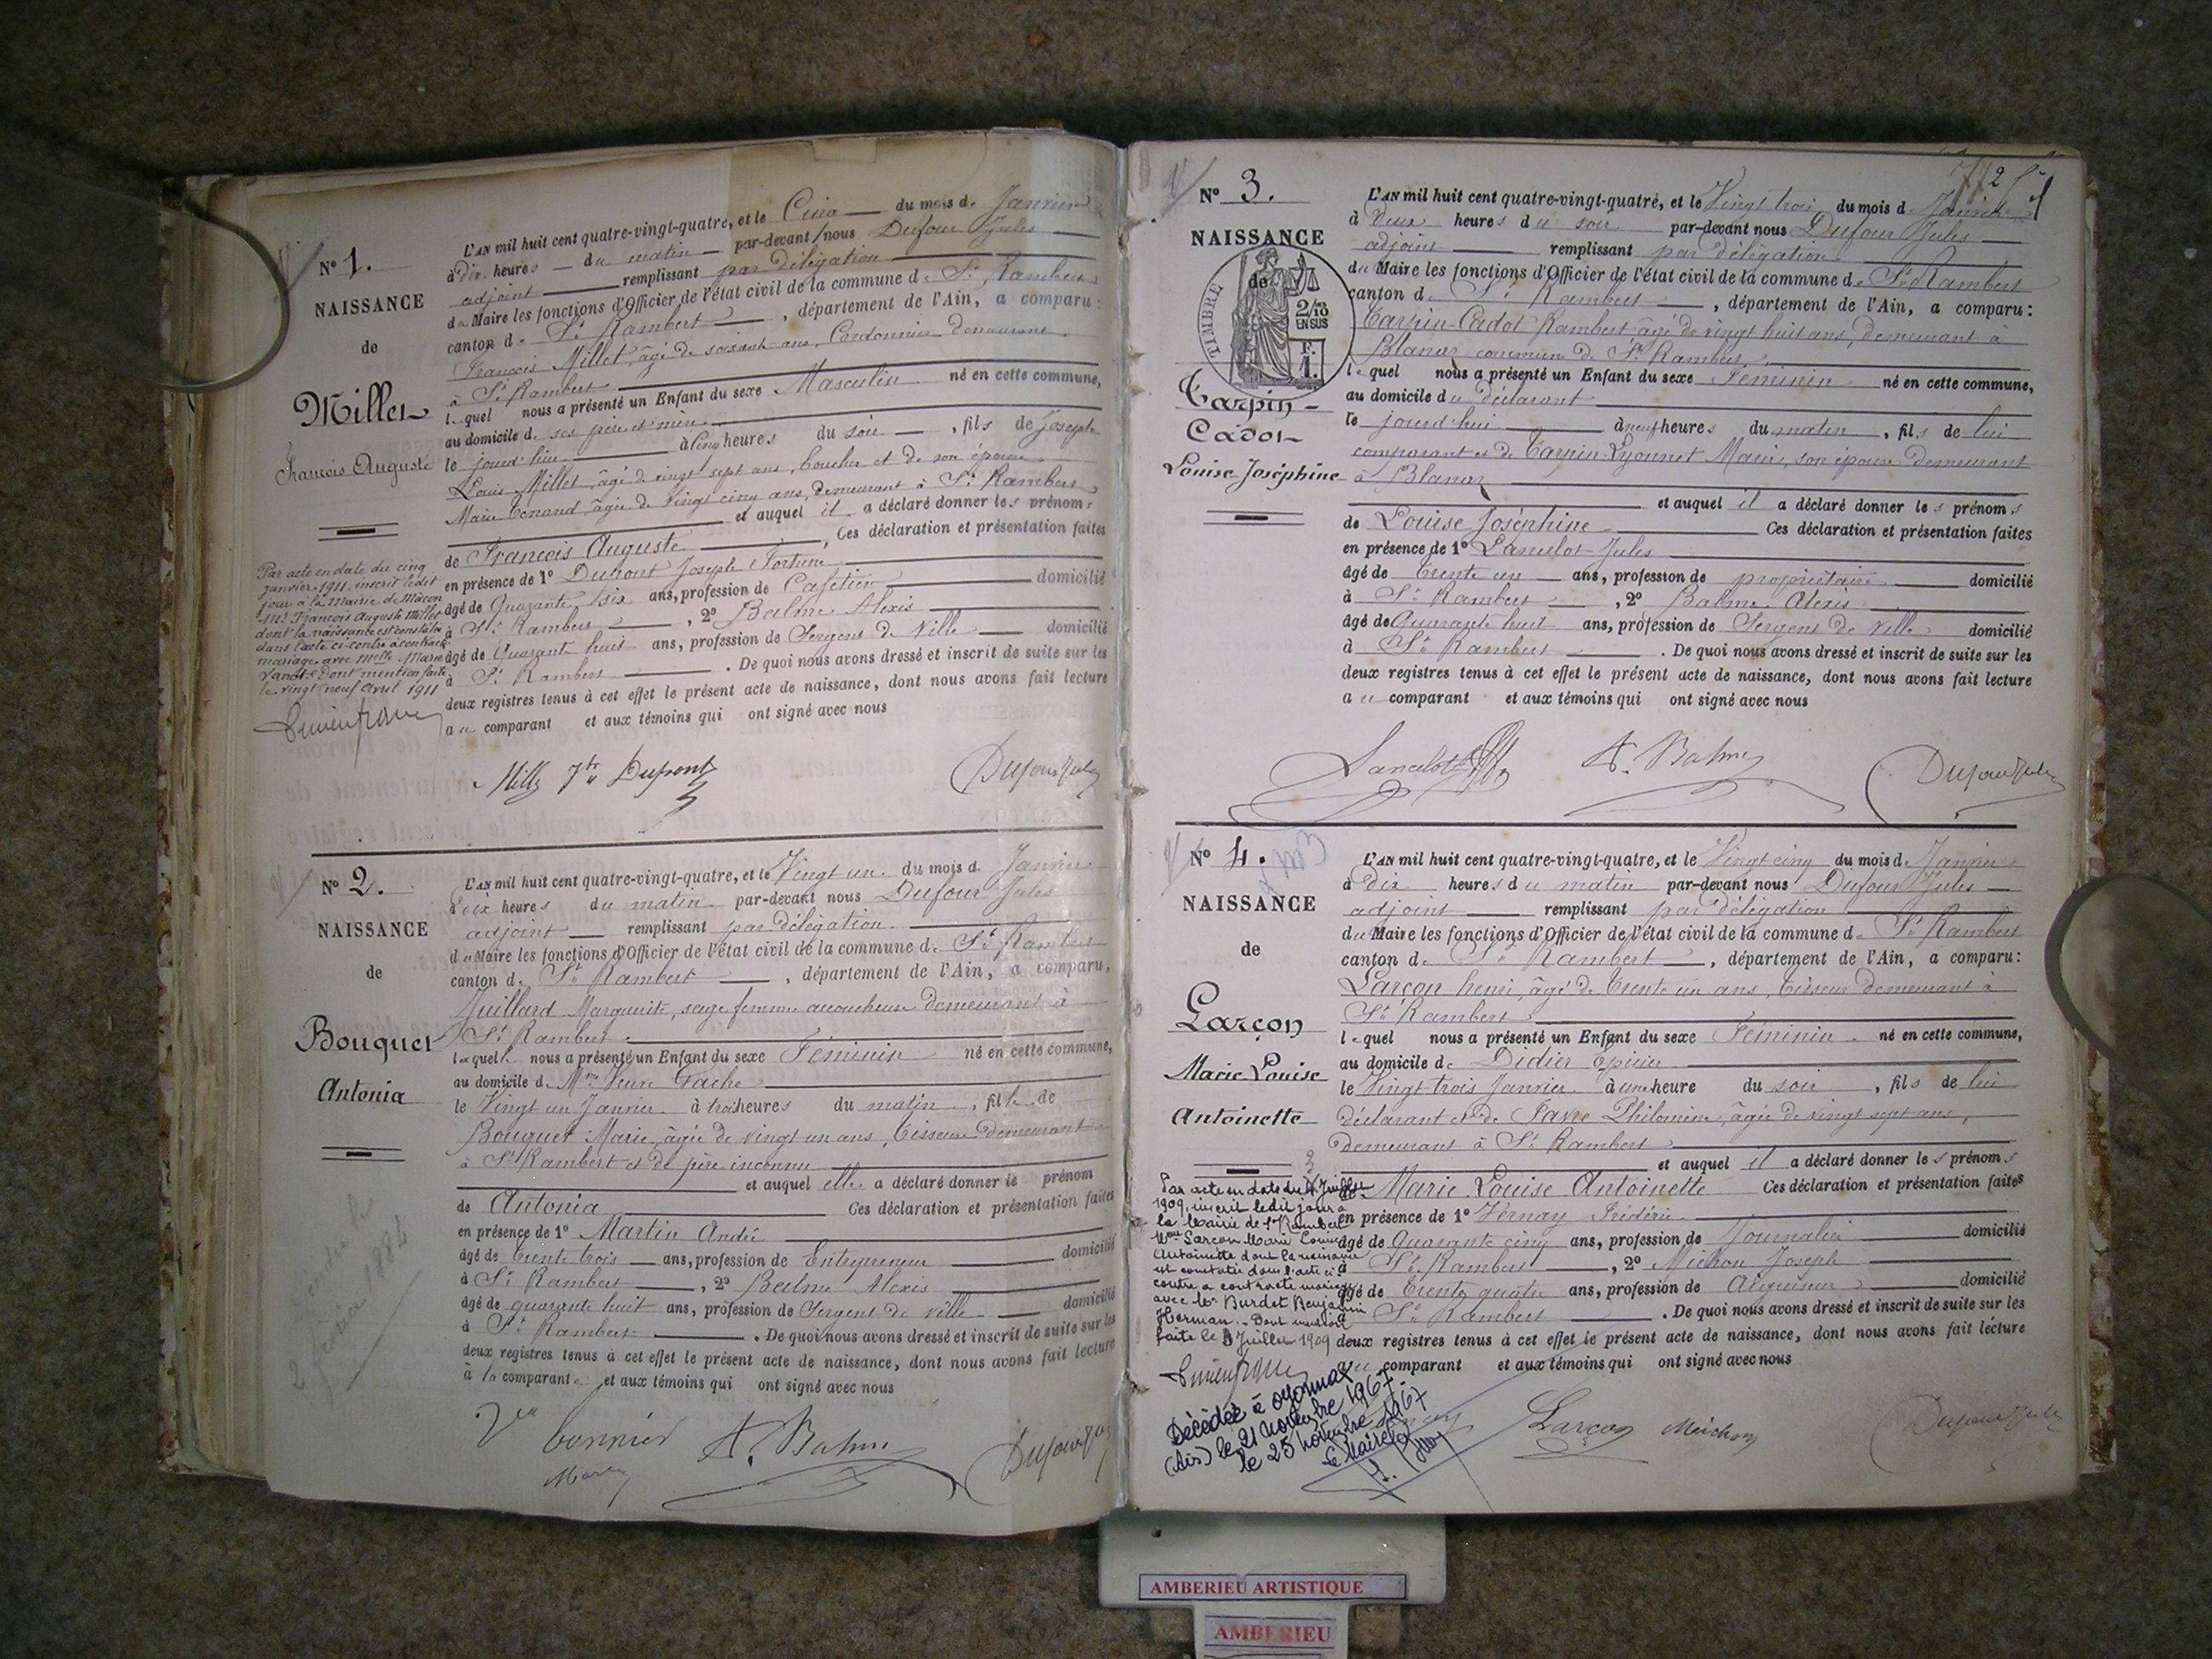 N° 1.
NAISSANCE
de
Millet
François Auguste
L'AN mil huit cent quatre-vingt-quatre, et le Cinq du mois de Janvier
à dix heures du matin par-devant nous Dufour Jules
adjoint remplissant par délégation
du Maire les fonctions d'Officier de l'état civil de la commune de St Rambert
canton de St Rambert, département de l'Ain, a comparu :
François Millet, âgé de soixante ans, Cordonnier demeurant
à St Rambert
lequel nous a présenté un Enfant du sexe Masculin né en cette commune,
au domicile de ses père et mère
le jourd'hier à cinq heures du soir, fils de Joseph
Louis Millet, âgé de vingt sept ans, boucher et de son épouse
Marie Tenand, âgée de Vingt cinq ans, demeurant à St Rambert
et auquel il a déclaré donner les prénoms
de François Auguste, Ces déclaration et présentation faites
en présence de 1° Dupont Joseph Fortuné
âgé de Quarante six ans, profession de Cafetier domicilié
à St Rambert, 2° Balme Alexis
âgé de Quarante huit ans, profession de Sergent de Ville domicilié
à St Rambert. De quoi nous avons dressé et inscrit de suite sur les
deux registres tenus à cet effet le présent acte de naissance, dont nous avons fait lecture
au comparant et aux témoins qui ont signé avec nous
Par acte en date du cinq
janvier 1911, inscrit ledit
jour à la Mairie de Mâcon
Mr François Auguste Millet
dont la naissance est constatée
dans l'acte ci-contre a contracté
mariage avec Melle Marie
Dont mention faite
le vingt neuf avril 1911
Dupont
Dufour Jules
N° 2.
NAISSANCE
de
Bouquet
Antonia
L'AN mil huit cent quatre-vingt-quatre, et le Vingt un du mois de Janvier
à dix heures du matin par-devant nous Dufour Jules
adjoint remplissant par délégation
du Maire les fonctions d'Officier de l'état civil de la commune de St Rambert
canton de St Rambert, département de l'Ain, a comparu,
Juillard Marguerite, sage femme accoucheuse demeurant à
St Rambert
laquelle nous a présenté un Enfant du sexe Féminin né en cette commune,
au domicile de Mme Veuve Gache
le Vingt un Janvier à trois heures du matin, fille de
Bouquet Marie, âgée de vingt un ans, tisseuse demeurant
à St Rambert et de père inconnu
et auquel elle a déclaré donner le prénom
de Antonia Ces déclaration et présentation faites
en présence de 1° Martin André
âgé de trente trois ans, profession de Entrepreneur domicilié
à St Rambert, 2° Balme Alexis
âgé de quarante huit ans, profession de Sergent de ville domicilié
à St Rambert. De quoi nous avons dressé et inscrit de suite sur les
deux registres tenus à cet effet le présent acte de naissance, dont nous avons fait lecture
à la comparante et aux témoins qui ont signé avec nous
A. Balme
Dufour Jules
N° 3.
NAISSANCE
de
TIMBRE
2/10
EN SUS
F.
1.
Tarpin-
Cadot
Louise Joséphine
L'AN mil huit cent quatre-vingt-quatre, et le Vingt trois du mois de Janvier
à Deux heures du soir par-devant nous Dufour Jules
adjoint remplissant par délégation
du Maire les fonctions d'Officier de l'état civil de la commune de St Rambert
canton de St Rambert, département de l'Ain, a comparu :
Tarpin-Cadot Rambert âgé de vingt huit ans, demeurant à
Blanaz commune de St Rambert
lequel nous a présenté un Enfant du sexe Féminin né en cette commune,
au domicile du déclarant
le jourd'hui à neuf heures du matin, fils de lui
comparant et de Tarpin-Lyonnet Marie, son épouse demeurant
à Blanaz
et auquel il a déclaré donner les prénoms
de Louise Joséphine Ces déclaration et présentation faites
en présence de 1° Lancelot Jules
âgé de trente un ans, profession de propriétaire domicilié
à St Rambert, 2° Balme Alexis
âgé de Quarante huit ans, profession de Sergent de ville domicilié
à St Rambert. De quoi nous avons dressé et inscrit de suite sur les
deux registres tenus à cet effet le présent acte de naissance, dont nous avons fait lecture
au comparant et aux témoins qui ont signé avec nous
Lancelot
A. Balme
Dufour Jules
N° 4.
NAISSANCE
de
Larçon
Marie Louise
Antoinette
L'AN mil huit cent quatre-vingt-quatre, et le Vingt cinq du mois de Janvier
à Dix heures du matin par-devant nous Dufour Jules
adjoint remplissant par délégation
du Maire les fonctions d'Officier de l'état civil de la commune de St Rambert
canton de St Rambert, département de l'Ain, a comparu :
Larçon henri, âgé de trente un ans, tisseur demeurant à
St Rambert
lequel nous a présenté un Enfant du sexe Féminin né en cette commune,
au domicile de Didier Epicier
le Vingt trois Janvier à une heure du soir, fils de lui
déclarant et de Favre Philomène, âgée de vingt sept ans,
demeurant à St Rambert
et auquel il a déclaré donner les prénoms
de Marie Louise Antoinette Ces déclaration et présentation faites
en présence de 1° Vernay Frédéric
âgé de Quarante cinq ans, profession de Journalier domicilié
à St Rambert, 2° Michon Joseph
âgé de trente quatre ans, profession de Aiguiseur domicilié
à St Rambert. De quoi nous avons dressé et inscrit de suite sur les
deux registres tenus à cet effet le présent acte de naissance, dont nous avons fait lecture
au comparant et aux témoins qui ont signé avec nous
Par acte en date du 3 Juillet
1909, inscrit ledit jour à
la Mairie de St Rambert
Melle Larçon Marie Louise
Antoinette dont la naissance
est constatée dans l'acte ci-
contre a contracté mariage
avec Mr Burdet Benjamin
Herman. Dont mention
faite le 3 Juillet 1909
Décédée à Oyonnax
(Ain) le 21 Novembre 1967.
le 25 novembre 1967
Le Maire
Larçon
Michon
Dufour Jules
AMBERIEU ARTISTIQUE
AMBERIEU